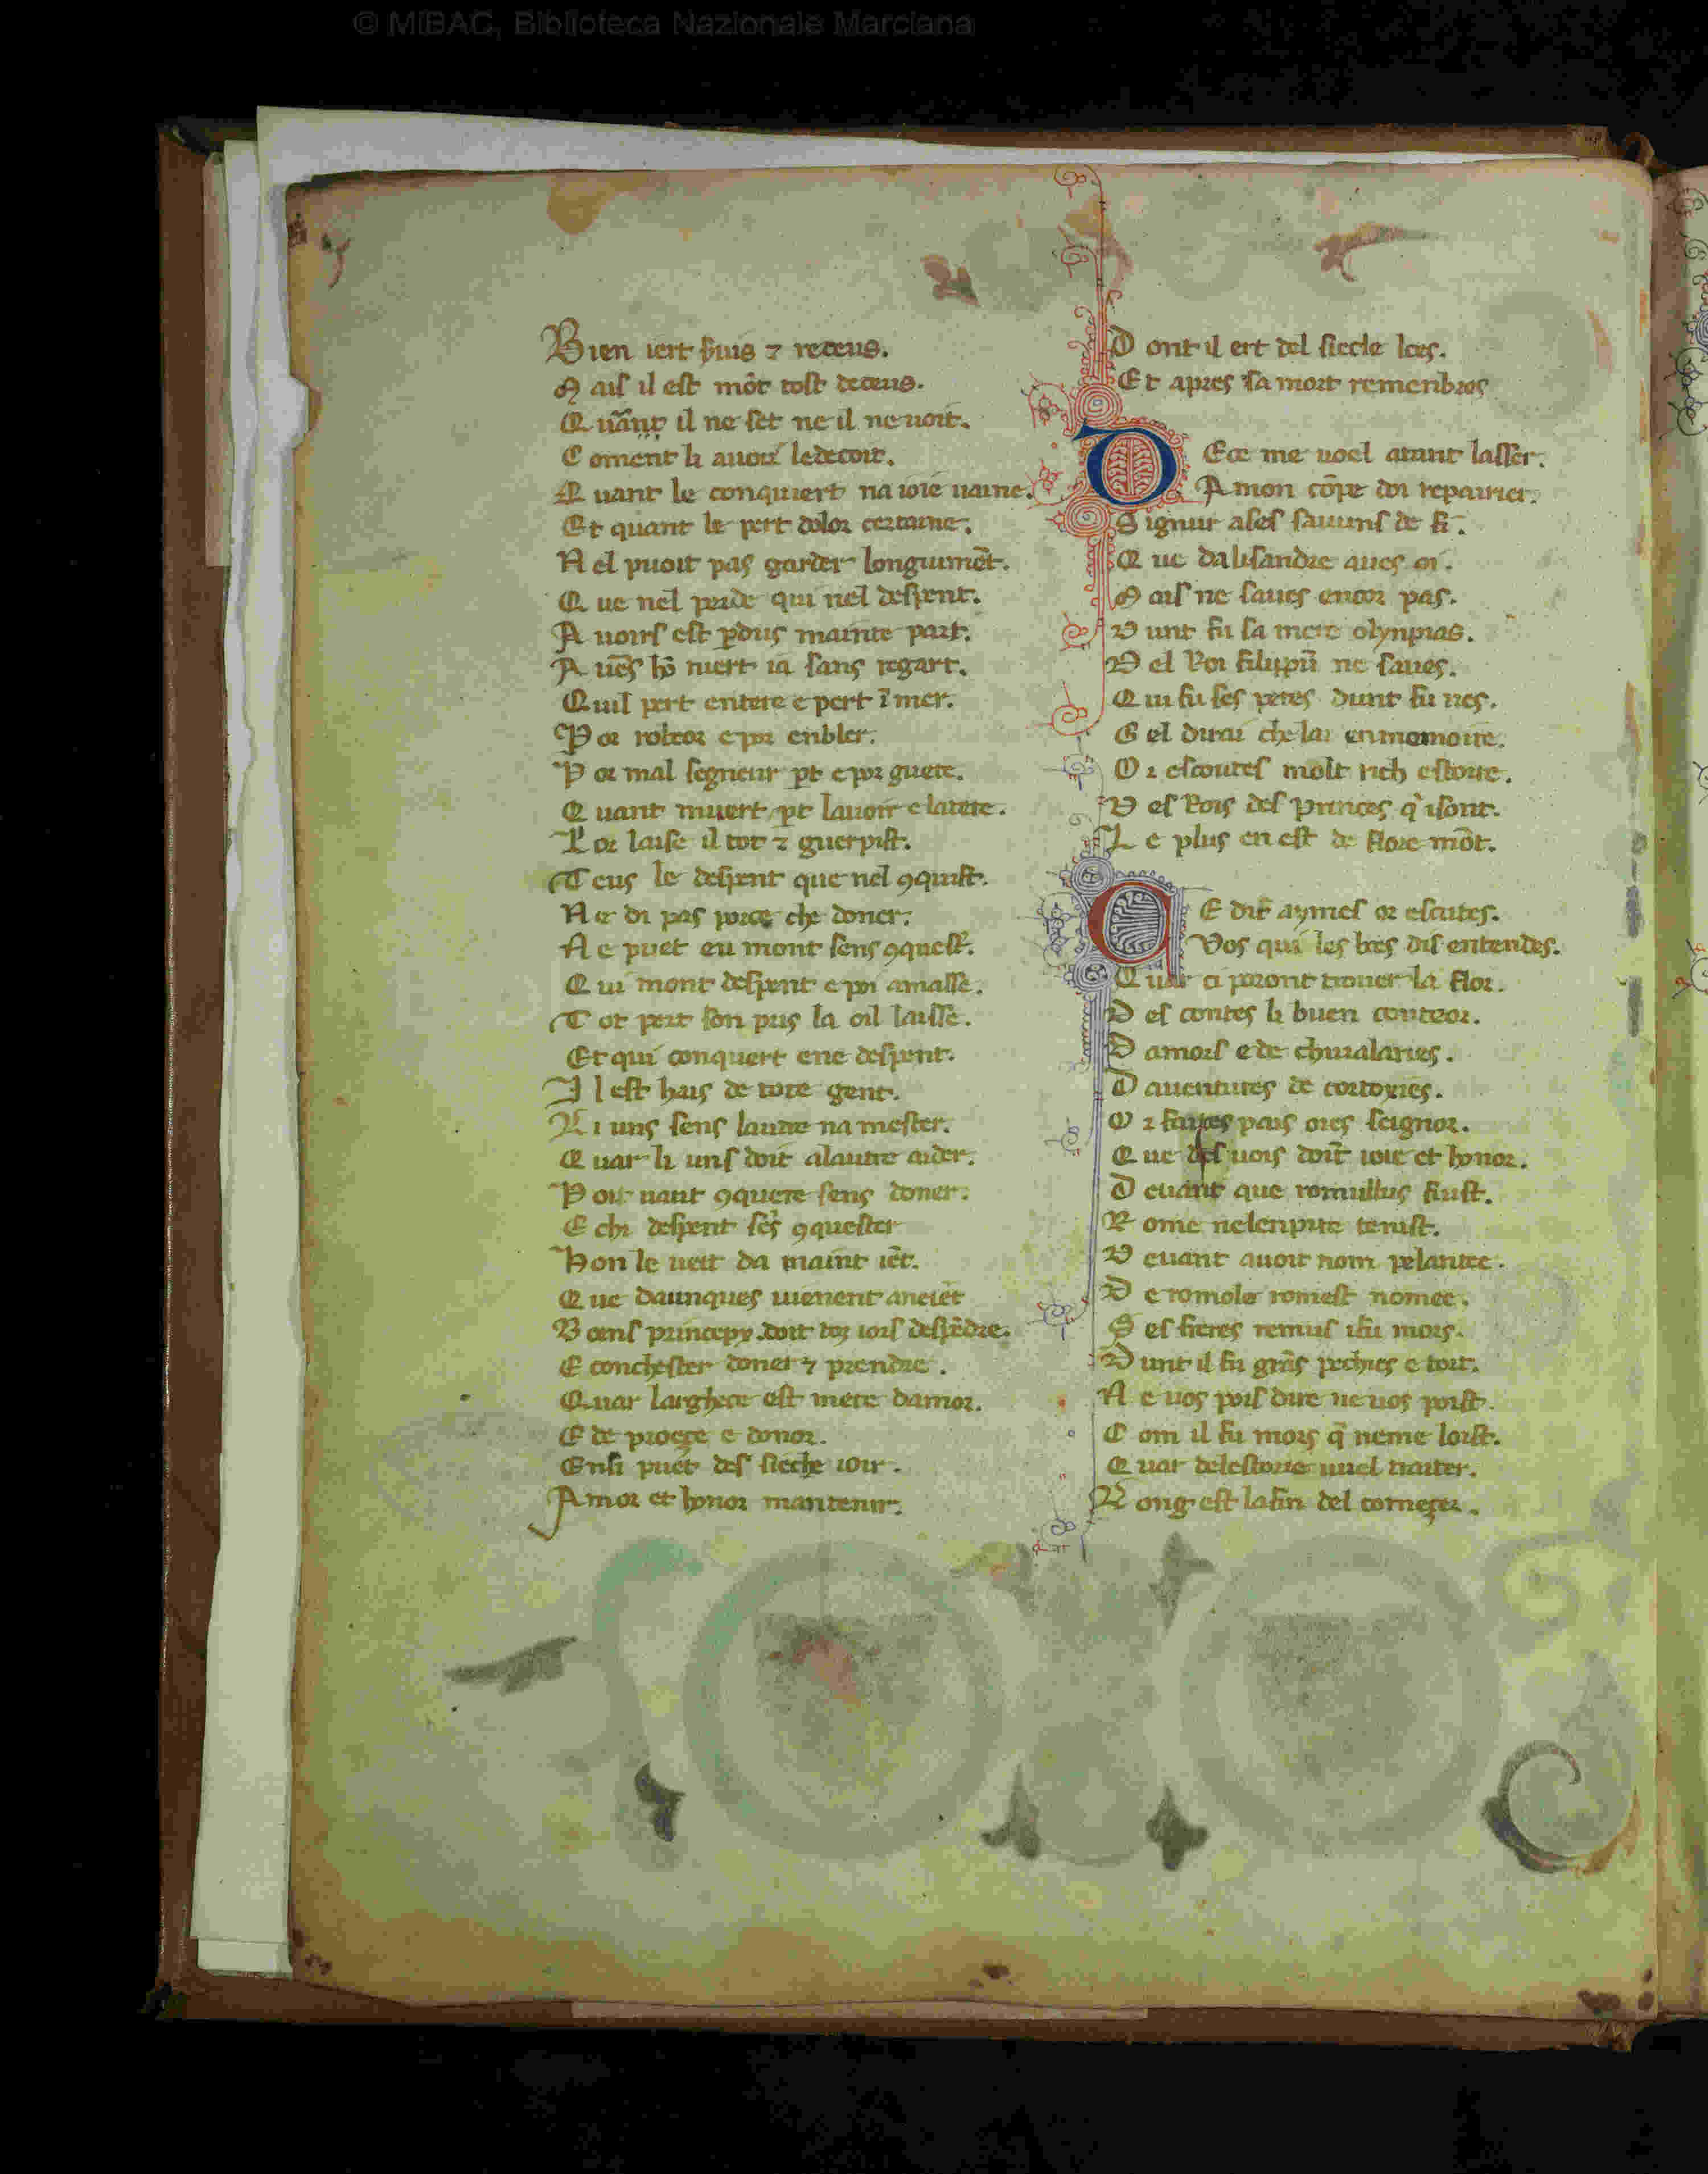 © MiBAC, Biblioteca Nazionale Marciana
Bien iert seruis ⁊ receus.
Mais il est mōt tost deceus.
Quānt il ne set ne il ne uoit.
Coment li auoir ledecoit.
Quant le conquiert na ioie uaine.
Et quant le pert dolor certaine.
Nel puoit pas garder longiumēt.
Que nel perde qui nel despent.
A uoirs est pdus mainte part.
A ues hō niert ia sans regart.
Quil pert entere e pert ī mer.
Por robeor e por enbler.
Por mal segneur pt e por guere.
Quant muert pt lauoir e latere.
Tot laise il tot ⁊ guerpist.
Teus le despent que nel ꝯquist.
Ne di pas porce che doner.
Ne puet eu mont sens ꝯquest.
Qui mont despent e poi amasse.
Tot pert son pris la oil laisse.
Et qui conquert ene despent.
Il est hais de tote gent.
Li uns sens lautre na mester.
Quar li uns doit alautre aider.
Poit uaut ꝯquere sens doner.
E chi despent sēs ꝯquester
Hon le ueit da maint iēt.
Que daunques uienent aneiēt
Boens princepx doit toz iors despēdre.
E conchester doner ⁊ prendre.
Quar larghece est mere damor.
E de proeçe e donor.
Ensi puet des sieche ioir.
Amor et honor mantenir.
Dont il ert del siecle loes.
Et apres sa mort remenbres
Dece me uoel atant lasser.
A mon cōpe doi repairier.
Signur ases sauuns de fi.
Que dalisandre aues oi.
Mais ne saues encor pas.
Dunt fu sa mere olynpias.
Del Roi filippū ne saues.
Qui fu ses peres dunt fu nes.
Gel dirai che lai enmemoire.
Or escoutes molt rich estoire.
Des Rois des princes q isont.
Le plus en est de flore-mōt.
Ce dit aymes or escutes.
Vos qui les bres dis entendes.
Quar ci poront trouer la flor.
Des contes li buen conteor.
Damors e de chiualaries.
Dauentures de cortoxies.
Or faites pais ores seignor.
Que des uois doit ioie et honor.
Deuant que romullus fust.
Rome nelenpire tenist.
Deuant auoit nom pelantee.
De romolo romest nomee.
Ses freres remus ifu mors.
Dunt il fu grās pechies e tort.
Ne uos pois dire ne uos poist.
Com il fu mors q̄ neme loist.
Quar delestorie uuel traiter.
Long est lafin del começer.